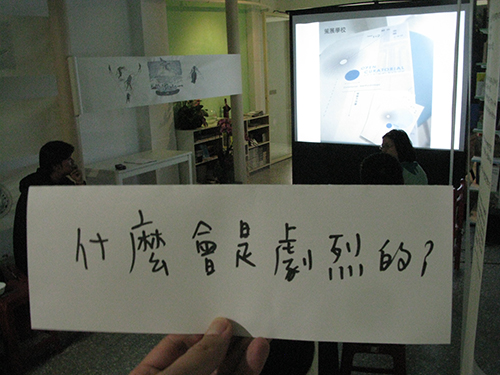 什麼會是劇烈的?